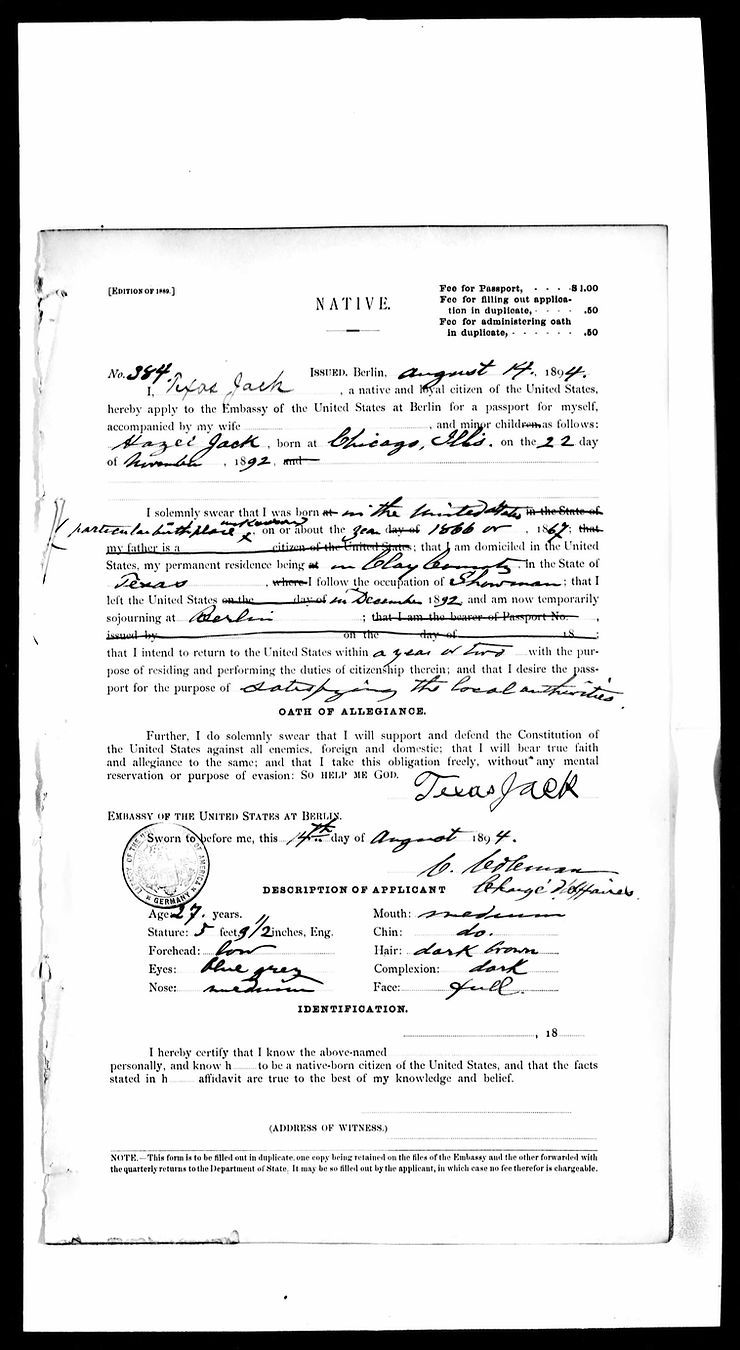 [EDITION OF 1889.]
Fee for Passport, - - - $1.00
Fee for filling out applica-
tion in duplicate, - - - - .50
Fee for administering oath
in duplicate, - - - - - - .50
NATIVE.
No. 384 ISSUED. Berlin, August 14. 1894.
I, Texas Jack, a native and loyal citizen of the United States,
hereby apply to the Embassy of the United States at Berlin for a passport for myself,
accompanied by my wife , and minor children as follows:
Hazel Jack, born at Chicago, Ills. on the 22 day
of November, 1892, and
I solemnly swear that I was born at in the United States in the State of
particular birthplace unknown, on or about the year day of 1866 or, 1867; that
my father is a citizen of the United States; that I am domiciled in the United
States, my permanent residence being at in Clay County, in the State of
Texas, where I follow the occupation of Showman; that I
left the United States on the day of in December 1892 and am now temporarily
sojourning at Berlin; that I am the bearer of Passport No. ,
issued by on the day of 18 ;
that I intend to return to the United States within a year or two with the pur-
pose of residing and performing the duties of citizenship therein; and that I desire the pass-
port for the purpose of satisfying the local authorities.
OATH OF ALLEGIANCE.
Further, I do solemnly swear that I will support and defend the Constitution of
the United States against all enemies, foreign and domestic; that I will bear true faith
and allegiance to the same; and that I take this obligation freely, without any mental
reservation or purpose of evasion: SO HELP ME GOD.
Texas Jack
EMBASSY OF THE UNITED STATES AT BERLIN.
Sworn to before me, this 14th day of August 1894.
C. Coleman
Chargé d'Affaires.
OF AMERICA
GERMANY
DESCRIPTION OF APPLICANT
Age: 27. years. Mouth: medium
Stature: 5 feet 9 1/2 inches, Eng. Chin: do.
Forehead: low Hair: dark brown
Eyes: blue grey Complexion: dark
Nose: medium Face: full
IDENTIFICATION.
, 18
I hereby certify that I know the above-named
personally, and know h to be a native-born citizen of the United States, and that the facts
stated in h affidavit are true to the best of my knowledge and belief.
(ADDRESS OF WITNESS.)
NOTE.—This form is to be filled out in duplicate, one copy being retained on the files of the Embassy and the other forwarded with
the quarterly returns to the Department of State. It may be so filled out by the applicant, in which case no fee therefor is chargeable.